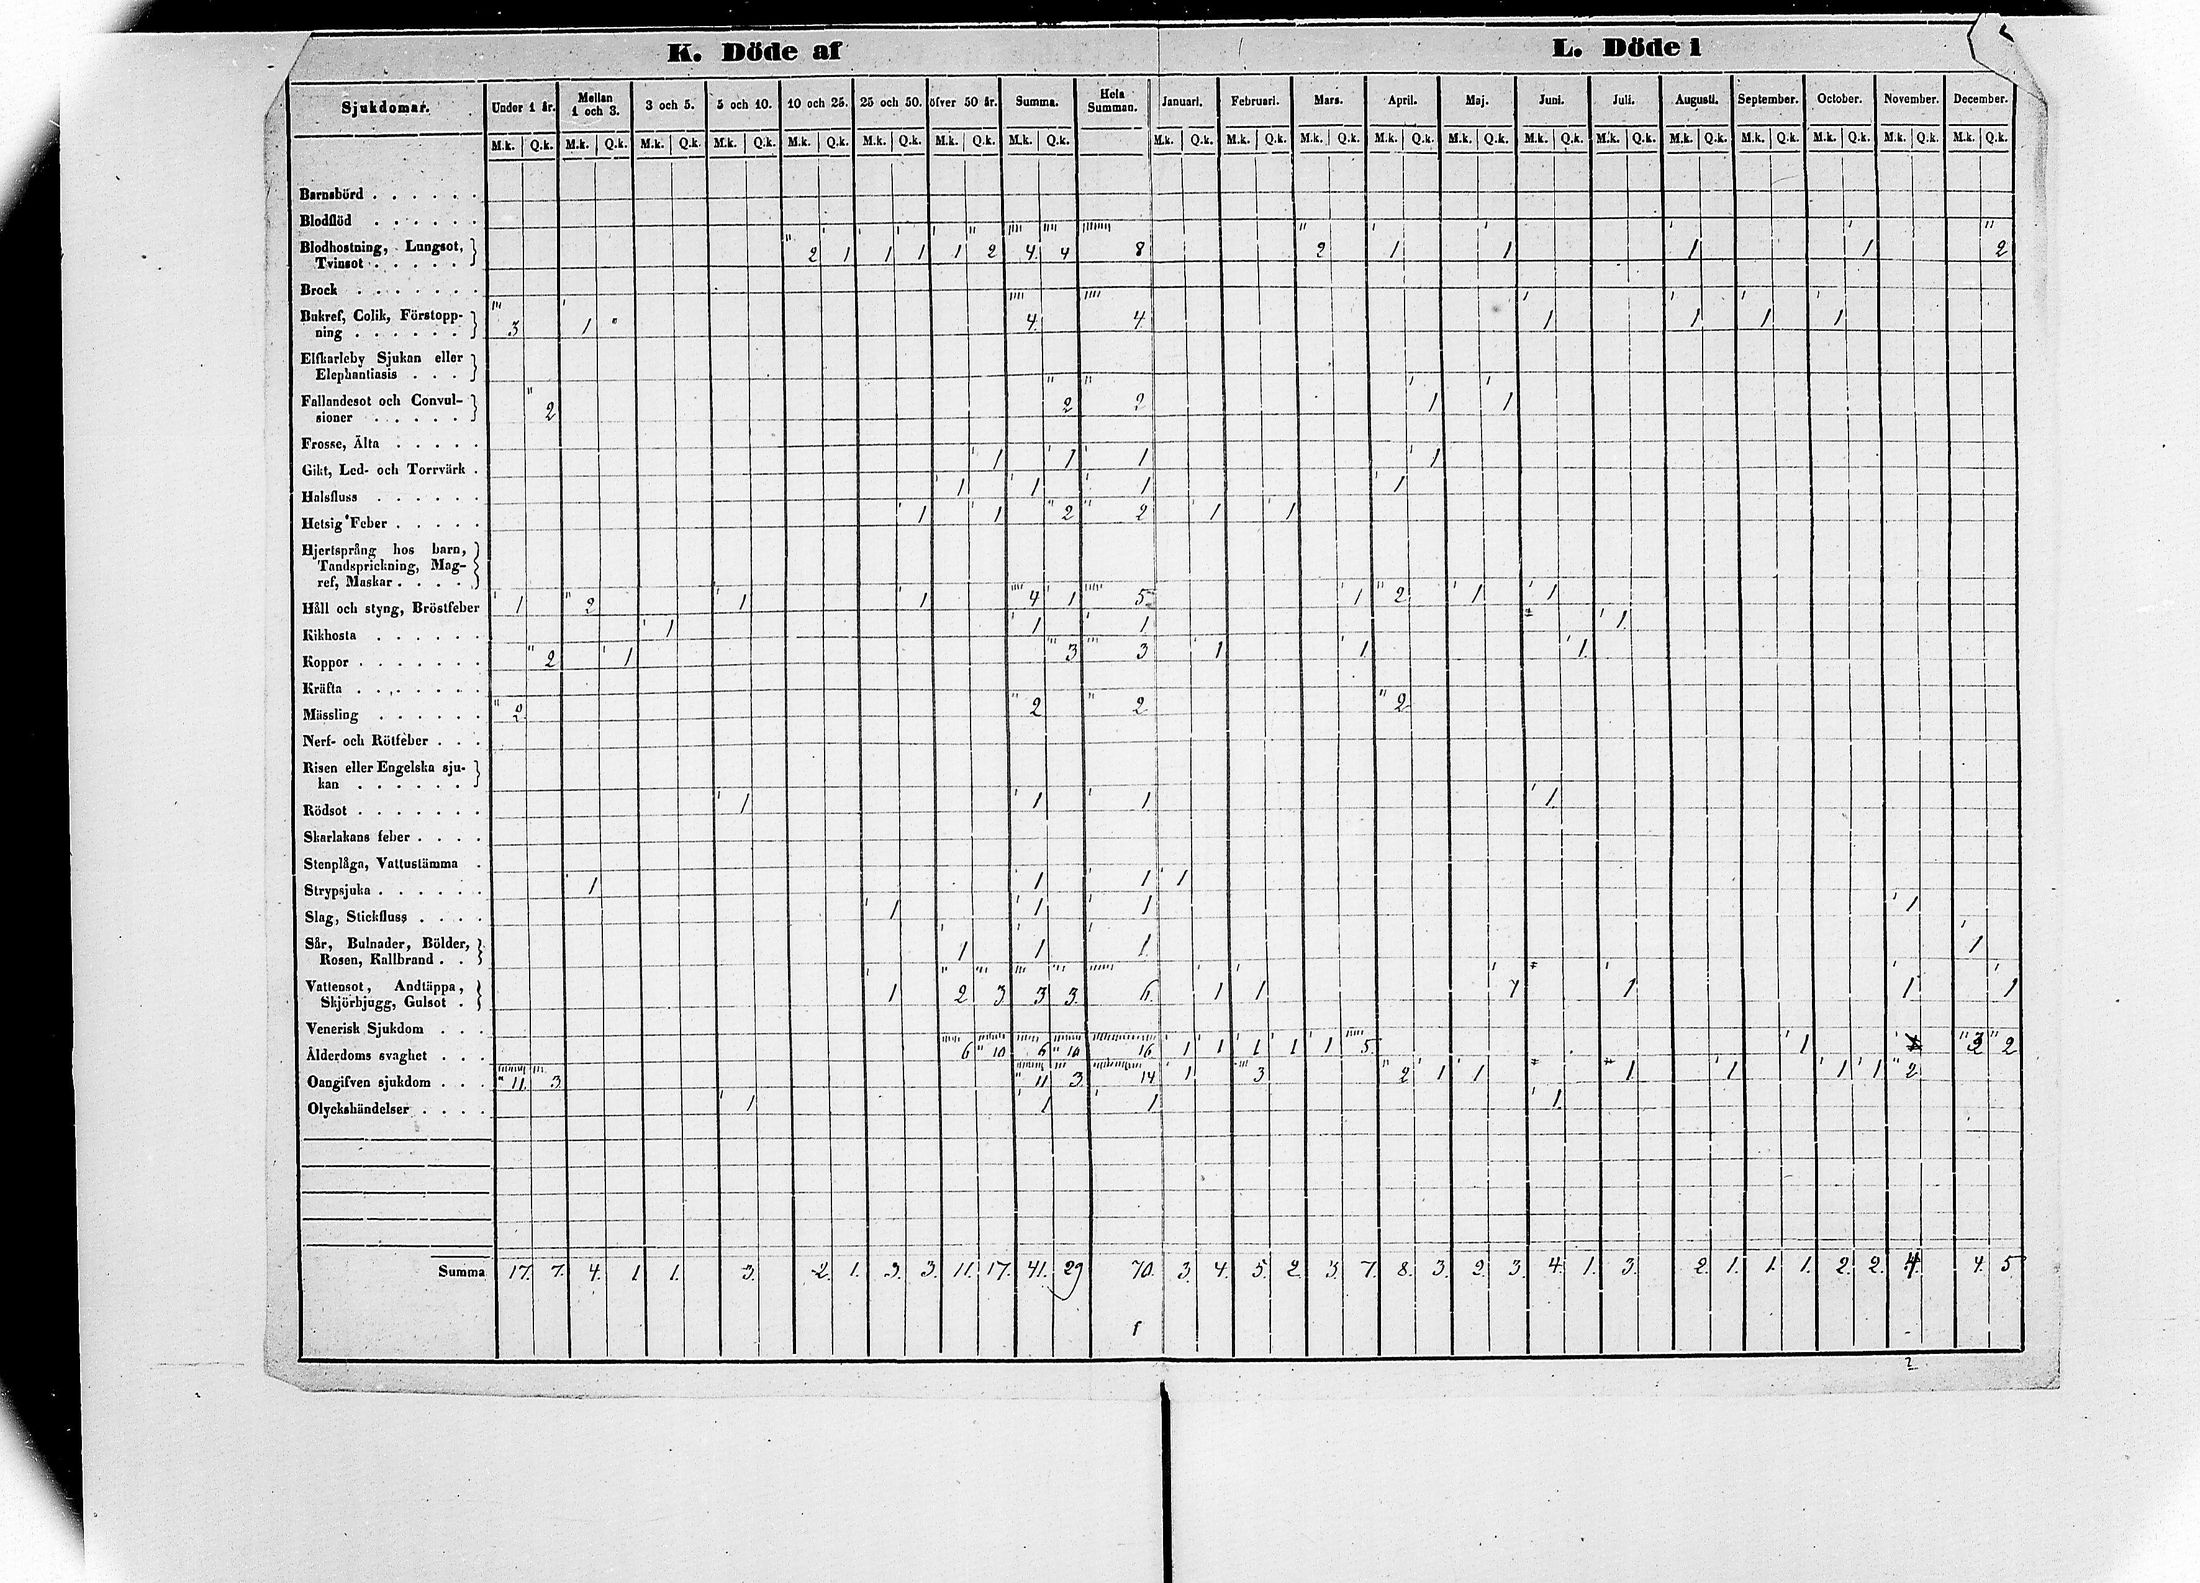 K. Döde af L. Döde i
Sjukdomar. Under 1 år. Mellan 1 och 3. 3 och 5. 5 och 10. 10 och 25. 25 och 50. öfver 50 år. Summa. Hela Summan. Januari. Februari. Mars. April. Maj. Juni. Juli. Augusti. September. October. November. December.
M.k. Q.k. M.k. Q.k. M.k. Q.k. M.k. Q.k. M.k. Q.k. M.k. Q.k. M.k. Q.k. M.k. Q.k. M.k. Q.k. M.k. Q.k. M.k. Q.k. M.k. Q.k. M.k. Q.k. M.k. Q.k. M.k. Q.k. M.k. Q.k. M.k. Q.k. M.k. Q.k. M.k. Q.k. M.k. Q.k.
Barnsbörd
Blodflöd
Blodhostning, Lungsot,
Tvinsot 2 1 1 1 1 2 4 4 8 2 1 1 1 1 2
Brock
Bukref, Colik, Förstopp-
ning 3 1 4 4 1 1 1 1
Elfkarleby Sjukan eller
Elephantiasis
Fallandesot och Convul-
sioner 2 2 2 1 1
Frosse, Älta
Gikt, Led- och Torrvärk 1 1 1 1
Halsfluss 1 1 1 1
Hetsig Feber 1 1 2 2 1 1
Hjertsprång hos barn,
Tandsprickning, Mag-
ref, Maskar
Håll och styng, Bröstfeber 1 2 1 1 4 1 5 1 2 1 1
Kikhosta 1 1 1 1
Koppor 2 1 3 3 1 1 1
Kräfta
Mässling 2 2 2 2
Nerf- och Rötfeber
Risen eller Engelska sju-
kan
Rödsot 1 1 1 1
Skarlakans feber
Stenplåga, Vattustämma
Strypsjuka 1 1 1 1
Slag, Stickfluss 1 1 1 1
Sår, Bulnader, Bölder,
Rosen, Kallbrand 1 1 1 1
Vattensot, Andtäppa,
Skjörbjugg, Gulsot 1 2 3 3 3 6 1 1 1 1 1 1
Venerisk Sjukdom
Ålderdoms svaghet 6 10 6 10 16 1 1 1 1 1 5 1 2 2
Oangifven sjukdom 11 3 11 3 14 1 3 2 1 1 1 1 1 1 2
Olyckshändelser 1 1 1 1
Summa 17. 7. 4. 1 1. 3. 2. 1. 3. 3. 11. 17. 41. 29 70. 3. 4. 5. 2. 3. 7. 8. 3. 2. 3. 4. 1. 3. 2. 1. 1. 1. 2. 2. 4 4. 5.
2